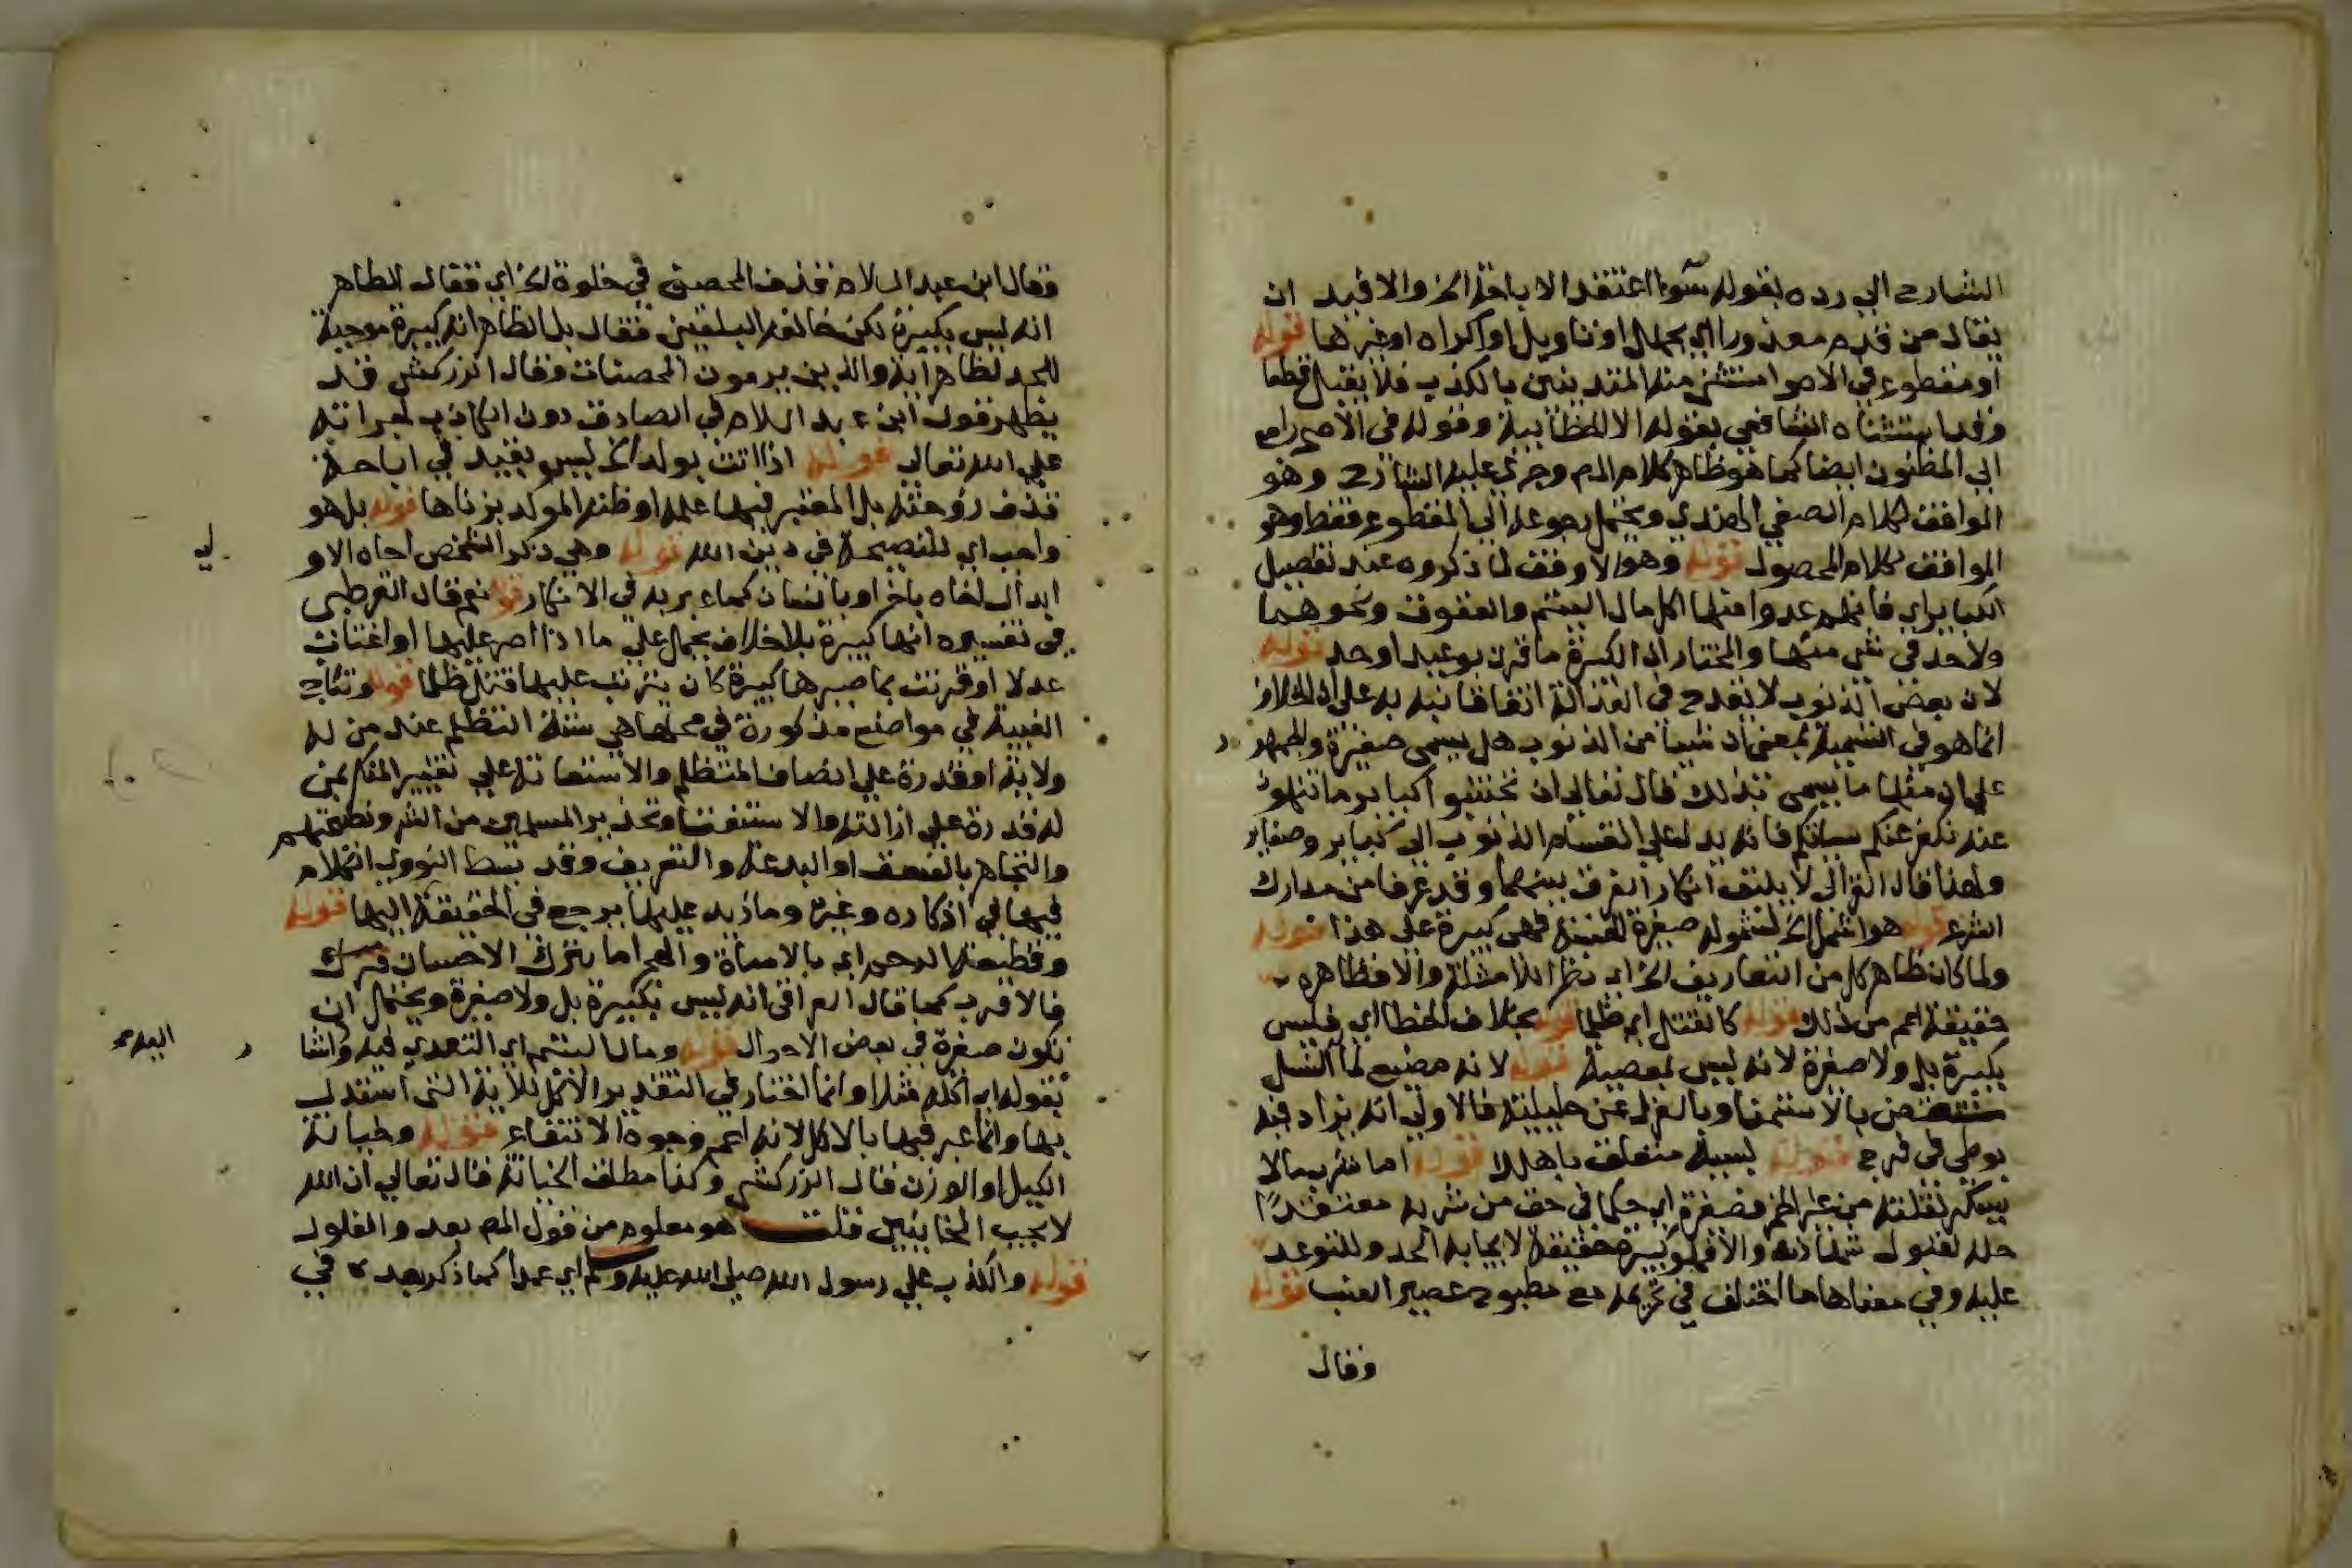 الشارح الى رده بقوله سواء اعتقد الاباحة الخ والا فيد ان
يقال من قدم معذورا اي بجهل او تاويل او اكراه او غيرها قوله
او مقطوع في الاصح استثنى منه المتدينين بالكذب فلا يقبل قطعا
وقد استثناه الشافعي بقوله الا الخطابية وقوله في الاصح راجع
الى المظنون ايضا كما هو ظاهر كلام المص وجرى عليه الشارح وهو
الموافق لكلام الصفي الهندي ويحتمل رجوعه الى المقطوع فقط وهو
الموافق لكلام المحصول قوله وهو الاوفق لما ذكروه عند تفصيل
الكباير اي فانهم عدوا منها اكل مال اليتيم والعقوق ونحوهما
ولا حد في شي منها والمختار ان الكبيرة ما قرن بوعيد او حد قوله
لان بعض الذنوب لا يقدح في العدالة اتفاقا نبه به على ان الخلاف
انما هو في التسمية بمعنى ان شيئا من الذنوب هل يسمى صغيرة والجمهور
على ان منها ما يسمى بذلك قال تعالى ان تجتنبوا كباير ما تنهون
عنه نكفر عنكم سياتكم فانه يدل على انقسام الذنوب الى كباير وصغاير
ولهذا قال الغزالي لا يليق انكار الفرق بينهما وقد عرفا من مدارك
الشرع قوله هو اشمل الخ لشموله صغيرة الخسة فهي كبيرة على هذا قوله
ولما كان ظاهر كل من التعاريف الخ اي نظرا للامثلة والا فظاهره
حقيقة اعم من ذلك قوله كالقتل اي ظلما قوله بخلاف الخطا اي فليس
بكبيرة بل ولا صغيرة لانه ليس بمعصية قوله لانه مضيع لما النسل
بالاستمنا وبالعزل عن حليلته فالاولى انه يزاد فيه
بوطى في فرج قوله لسببه متعلق باهلاك قوله اما شرب ما لا
يسكر لقلته من غير الخمر فصغيرة اي حكما في حق من شربه معتقدا
حله لقبول شهادته والا فهو كبيرة حقيقة لايجابه الحد وللتوعد
عليه وفي معناها ما اختلف في تحريمه مع مطبوخ عصير العنب قوله
وقال
وقال ابن عبد السلام قذف المحصن في خلوة الخ اي فقال الظاهر
انه ليس بكبيرة لكن خالفه البلقيني فقال بل الظاهر انه كبيرة موجبة
للحد لظاهر اية والذين يرمون المحصنات وقال الزركشي قد
يظهر قول ابن عبد السلام في الصادق دون الكاذب لجراته
على الله تعالى قوله اذا اتت بولد الخ ليس بقيد في اباحة
قذف زوجته بل المعتبر فيها علمه او ظنه المؤكد بزناها قوله بل هو
واجب اي للنصيحة في دين الله قوله وهي ذكر الشخص اخاه الاو
ابدال اخاه باخر او بانسان كما عبر به في الاذكار قوله نعم قال القرطبي
في تفسيره انها كبيرة بلا خلاف يحمل على ما اذا اصر عليها او اغتاب
عدلا او قرنت بما صيرها كبيرة كان يترتب عليها قتل ظلما قوله وتباح
الغيبة في مواضع مذكورة في محلها هي ستة التظلم عند من له
ولاية او قدرة على انصاف المتظلم والاستعانة على تغيير المنكر بمن
له قدرة على ازالته والاستفتا وتحذير المسلمين من الشر ونصيحتهم
والتجاهر بالفسق او البدعة والتعريف وقد بسط النووي الكلام
فيها في اذكاره وغيره وما زيد عليها يرجع في الحقيقة اليها قوله
وقطيعة الرحم اي بالاساة والهجر اما بترك الاحسان
فالاقرب كما قال العراقي انه ليس بكبيرة بل ولا صغيرة ويحتمل ان
يكون صغيرة في بعض الاحوال قوله ومال اليتيم اي التعدي فيه واشا
بقوله اي اكله مثلا وانما اختار في التقدير الاكل للاية التي استدل
بها وانما عبر فيها بالاكل لانه اعم وجوه الانتفاع قوله وخيانة
الكيل او الوزن قال الزركشي وكذا مطلق الخيانة قال تعالى ان الله
لا يحب الخاينين قلت هو معلوم من قول المص بعد والغلول
قوله والكذب على رسول الله صلى الله عليه وسلم اي عمدا كما ذكر بعد في